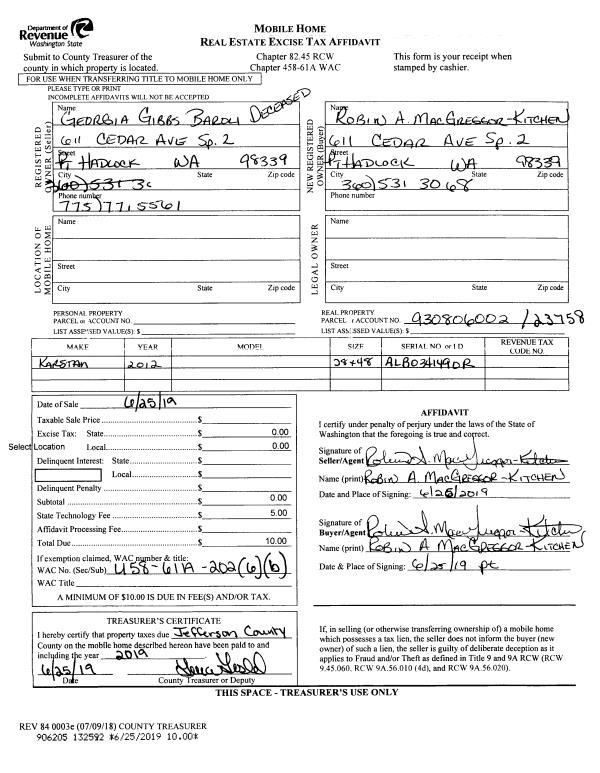 Department of
Revenue
Washington State
MOBILE HOME
REAL ESTATE EXCISE TAX AFFIDAVIT
Submit to County Treasurer of the
county in which property is located.
Chapter 82.45 RCW
Chapter 458-61A WAC
This form is your receipt when
stamped by cashier.
FOR USE WHEN TRANSFERRING TITLE TO MOBILE HOME ONLY
PLEASE TYPE OR PRINT
INCOMPLETE AFFIDAVITS WILL NOT BE ACCEPTED
REGISTERED OWNER (Seller)
Name
GEORGIA GIBBS BARDU DECEASED
611 CEDAR AVE SP. 2
Street
PT HADLOCK WA 98339
City State Zip code
360)531 30
Phone number
775)771,5561
NEW REGISTERED OWNER (Buyer)
Name
ROBIN A. MACGREGOR-KITCHEN
611 CEDAR AVE SP. 2
Street
PT HADLOCK WA 98339
City State Zip code
360)531 3068
Phone number
LOCATION OF MOBILE HOME
Name
Street
City State Zip code
LEGAL OWNER
Name
Street
City State Zip code
PERSONAL PROPERTY
PARCEL or ACCOUNT NO.
LIST ASSESSED VALUE(S): $
REAL PROPERTY
PARCEL ACCOUNT NO. 930806002 /23758
LIST ASSESSED VALUE(S): $
MAKE YEAR MODEL SIZE SERIAL NO. or I.D. REVENUE TAX CODE NO.
KARSTAN 2012 28+48 ALB034149OR
Date of Sale 6/25/19
Taxable Sale Price $
Excise Tax: State $ 0.00
Select Location Local $ 0.00
Delinquent Interest: State $
Local $
Delinquent Penalty $
Subtotal $ 0.00
State Technology Fee $ 5.00
Affidavit Processing Fee $
Total Due $ 10.00
If exemption claimed, WAC number & title:
WAC No. (Sec/Sub) 458-61A-202(6)(b)
WAC Title
A MINIMUM OF $10.00 IS DUE IN FEE(S) AND/OR TAX.
AFFIDAVIT
I certify under penalty of perjury under the laws of the State of
Washington that the foregoing is true and correct.
Signature of
Seller/Agent Robin A. MacGregor-Kitchen
Name (print) ROBIN A. MACGREGOR-KITCHEN
Date and Place of Signing: 6/25/2019
Signature of
Buyer/Agent Robin A. MacGregor Kitchen
Name (print) ROBIN A MACGREGOR-KITCHEN
Date & Place of Signing: 6/25/19 pt
TREASURER'S CERTIFICATE
I hereby certify that property taxes due Jefferson County
County on the mobile home described hereon have been paid to and
including the year 2019
6/25/19
Date County Treasurer or Deputy
If, in selling (or otherwise transferring ownership of) a mobile home
which possesses a tax lien, the seller does not inform the buyer (new
owner) of such a lien, the seller is guilty of deliberate deception as it
applies to Fraud and/or Theft as defined in Title 9 and 9A RCW (RCW
9.45.060. RCW 9A.56.010 (4d), and RCW 9A.56.020).
THIS SPACE - TREASURER'S USE ONLY
REV 84 0003e (07/09/18) COUNTY TREASURER
906205 132592 *6/25/2019 10.00*